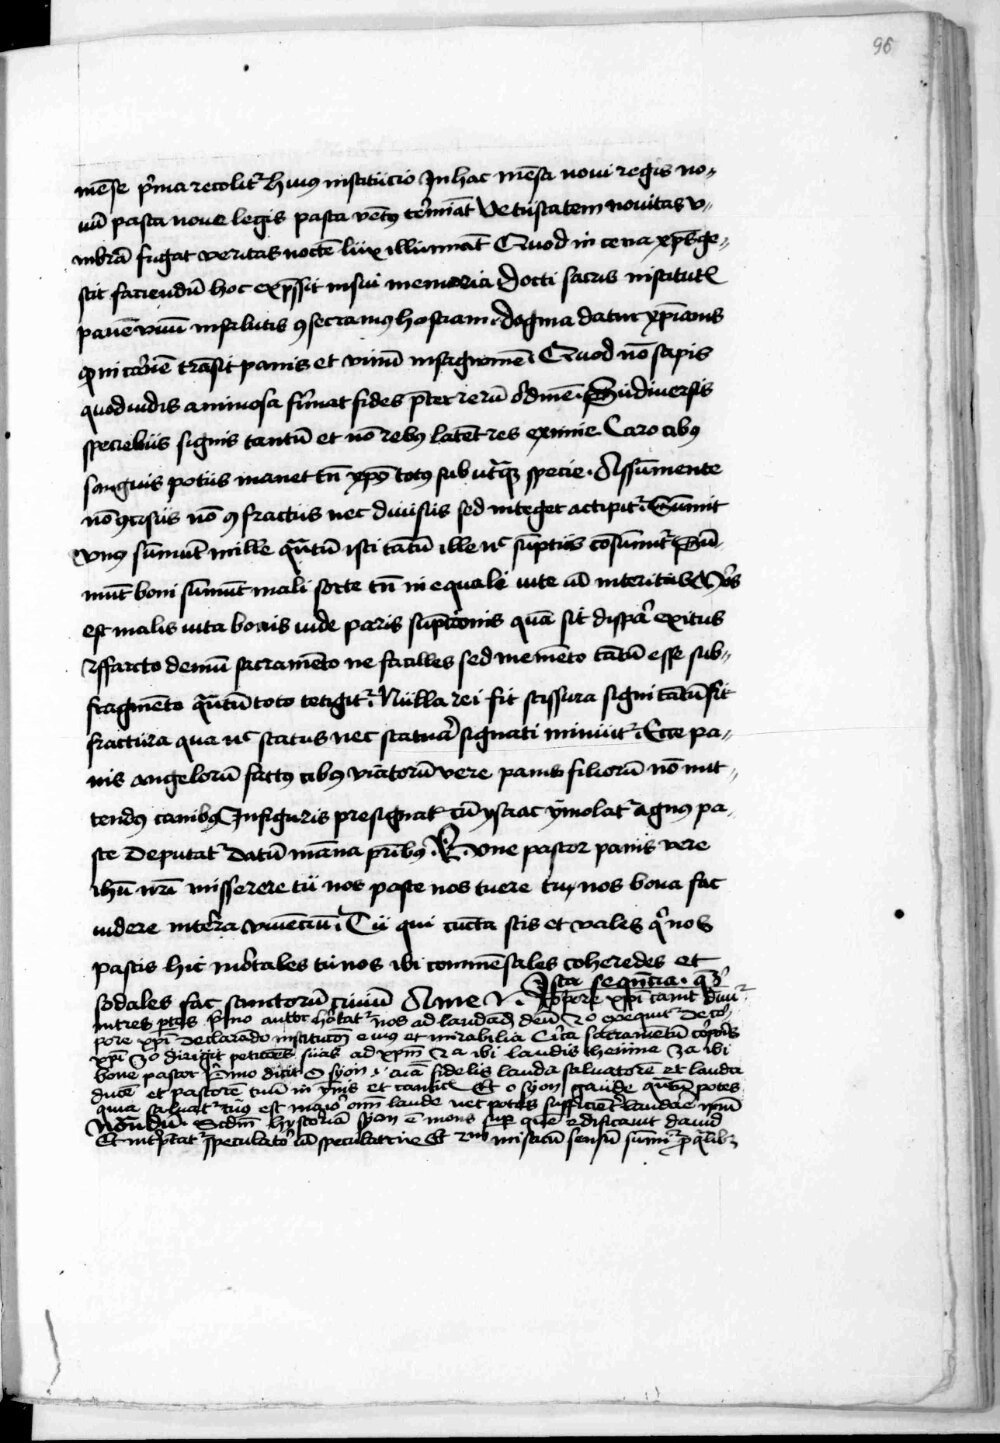 96
mēse p̄ma recolit᷑ huiꝰ institucio In hac mēsa noui regis no„
uū pasca noue legis pasca vetꝰ t̄miāt Vetustatem nouitas v„
mbrā fugat veritas noctē lux illūinat Quod in cena xp̄s ge„
ssit faciendū hoc exp̄ssit in sui memoria Docti sacris institutꝭ
panē vinū in salutis ꝯsecramꝰ hostiam Dogma datur xp̄ianis
ꝙ in carnē trāsit panis et vinū in sagwinē Quod nō capis
quod uidis animosa firmat fides p̄ter rerū ordinē Sub diuersis
speciebus signis tantū et nō rebꝰ latēt res eximie Caro cibꝰ
sanguis potus manet tn̄ xp̄c totꝰ sub utraqꝫ specie Assumente
nō ꝯcisus nō ꝯfractus nec diuisus sed integer accipit᷑ Sumit
vnꝰ sumūt mille qūtū isti tātū ille nc̄ sumptus cōsumit᷑ Su„
mūt boni sumūt mali sorte tn̄ inequali uite uł interitus Mors
est malis uita bonis uide paris sumptionis quā sit dispar exitus
ffracto demū sacramēto ne facilles sed memēto tātū esse sub„
fragmēto qūtū toto tetigit᷑ Nulla rei fit scissura signi tātū fit
fractura qua nc̄ status nec statura signati minuit᷑ Ecce pa„
nis angelorū factꝰ cibꝰ viatorū vere panis filiorū nō mit„
tendꝰ canibꝰ In figuris presignat᷑ cū ysaac ymolat᷑ agnꝰ pa„
sce deputat᷑ datū māna p̄ribꝰ Bone pastor panis vere
ihū nr̄i misserere tu nos pasce nos tuere tu nos bona fac
uidere in terra viuenciū Tu qui cuncta scis et vales q̄ nos
pascis hic mortales tu nos ibi commēsales coheredes et
sodales fac sanctorū ciuiū Amen. Ista sequēcia que
de corpore xp̄i canit᷑ diuidit᷑
in tres ꝑtes p̄mo autor hortat᷑ nos ad laudandū deū 2o exequit᷑ de cor„
pore xp̄i declarādo institucoē eiꝰ et mirabilia circa sacramentū corporis
xp̄i 3o dirigit peticōēs suas ad xp̄m 2a ibi laudis theme 3a ibi
bone pastor p̄imo dicit O syon i. aīa fidelis lauda saluatorē et lauda
ducē et pastorē tuū in ympnis et canticꝭ Et o syon gaude qūtū potes
quia saluator tuꝰ est maior omī laude nec potes sufficienter laudare ipsū
Notandū Scdm̄ hystoriā syon ē mons super quē edificauit dauid
Et interp̄tat᷑ speculator uł speculatrix Et misticū sensū sumit᷑ pro qualibꝫ